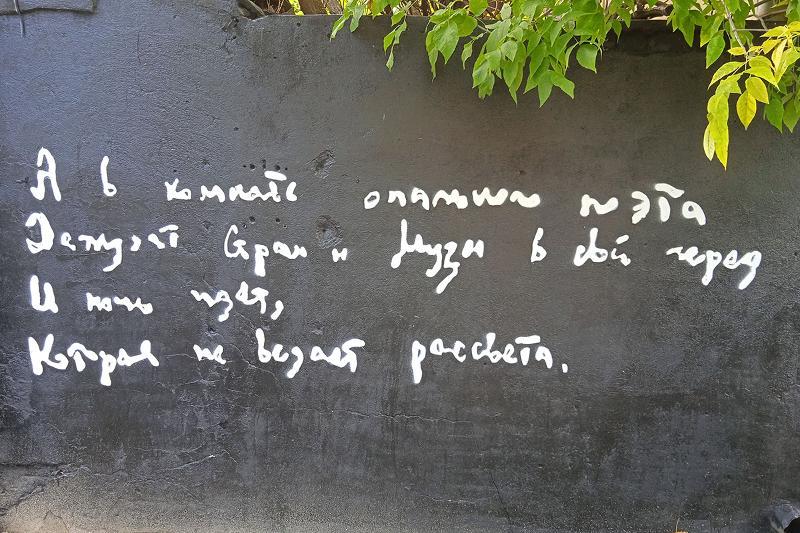 А в комнате опального поэта
Дежурят страх и Муза в свой черед
И ночь идет,
Которая не ведает рассвета.